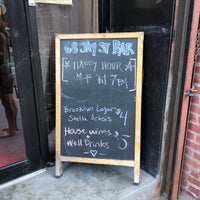 68 JAY ST BAR
HAPPY HOUR
M-F 'til 7PM
Brooklyn Lager
Stella Artois $4
House wines +
Well Drinks $5